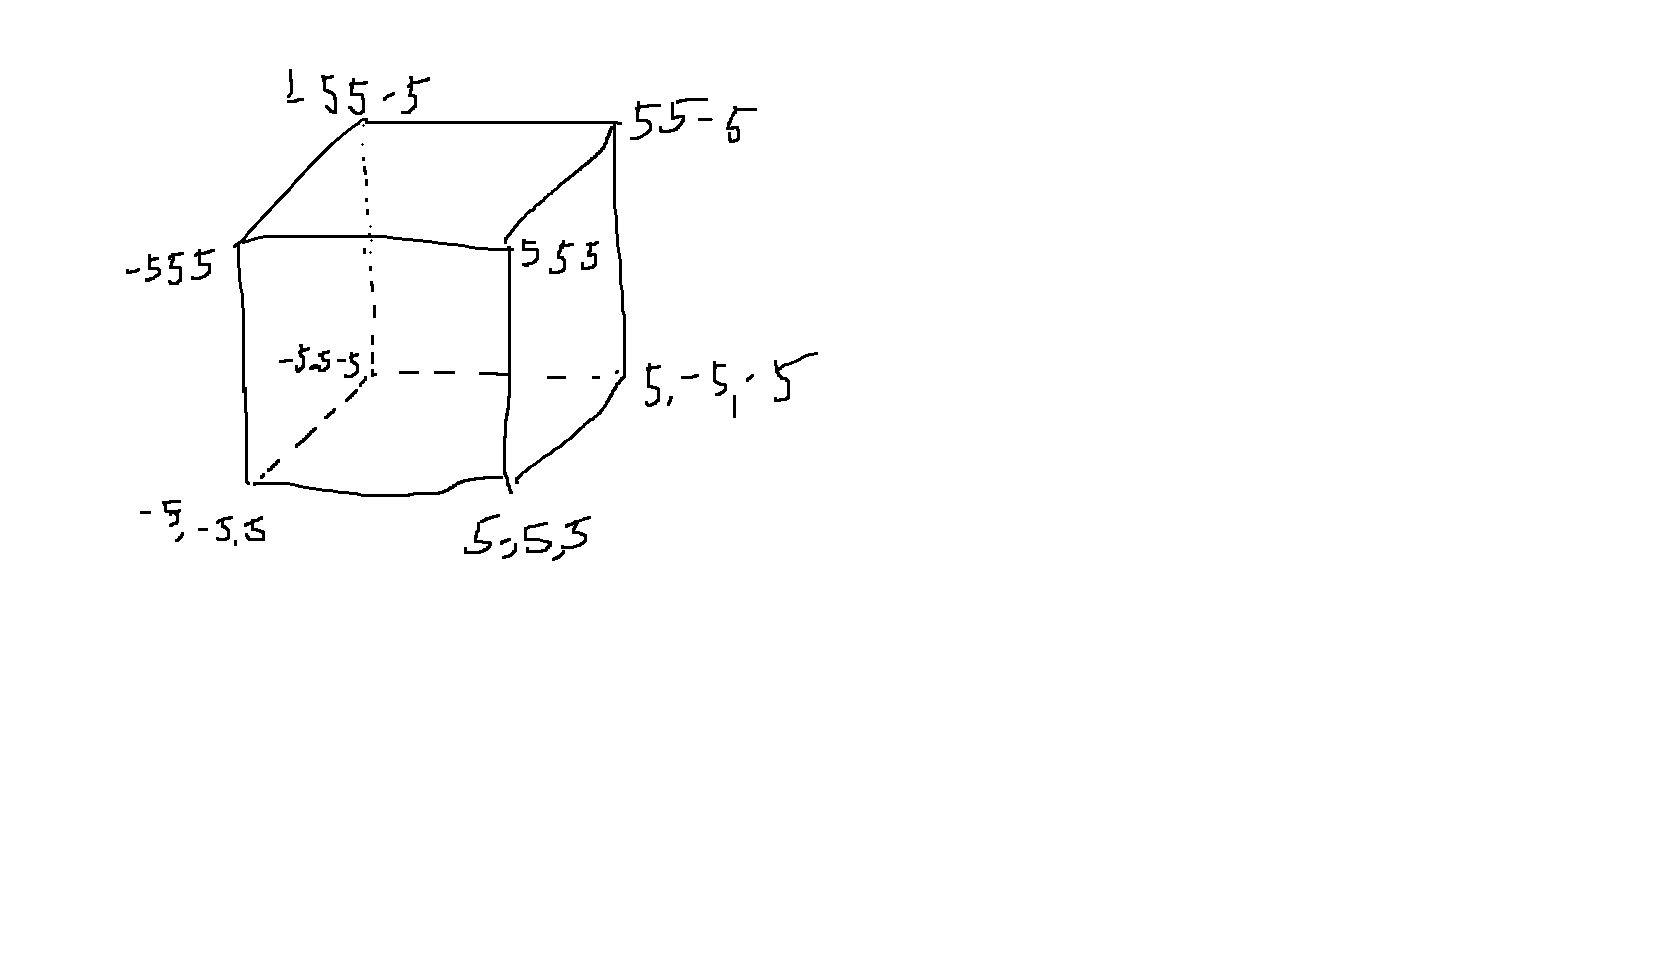 -55-5
55-5
-555
555
-5-5-5
5,-5,-5
-5,-5,5
5-,5,5